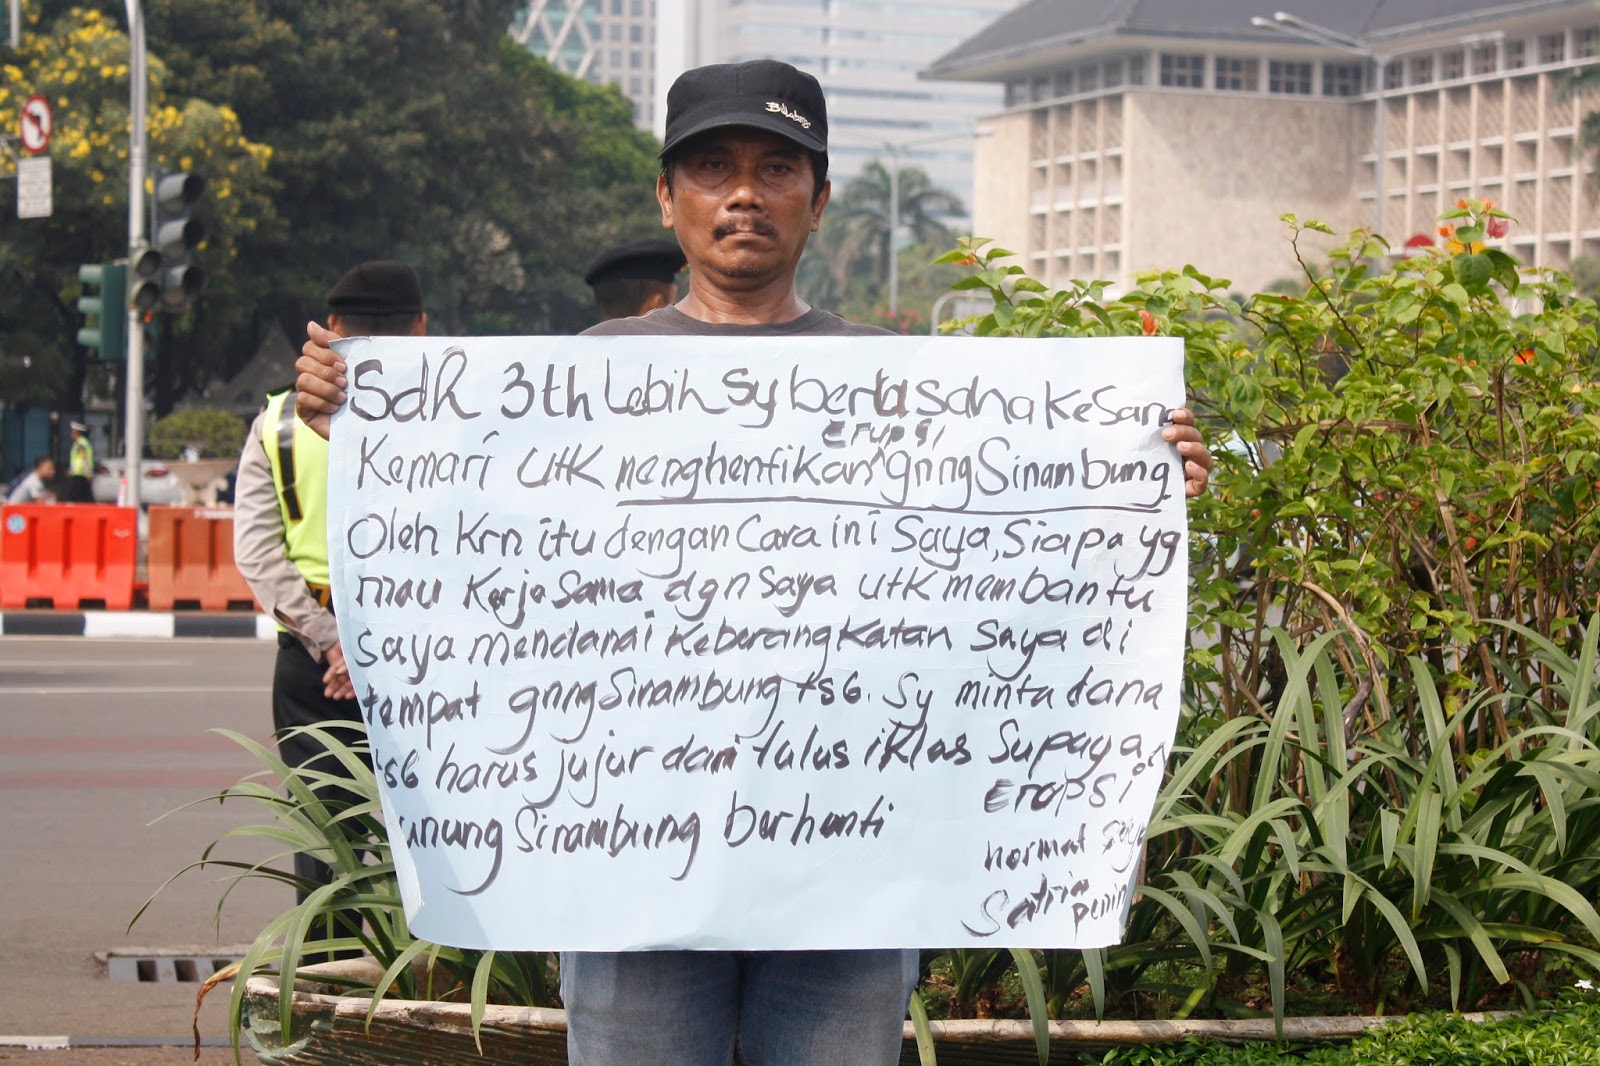 Sdh 3th Lebih Sy berusaha Kesana
Kemari UtK menghentikan Erupsi gnng Sinambung
Oleh Krn itu dengan Cara ini Saya, Siapa yg
mau Kerja Sama dgn Saya UtK membantu
Saya mendanai Keberangkatan Saya di
tempat gnng Sinambung tsb. Sy minta dana
tsb harus jujur dan tulus iklas Supaya Erupsi
unung Sinambung berhenti
hormat Saya
Satria